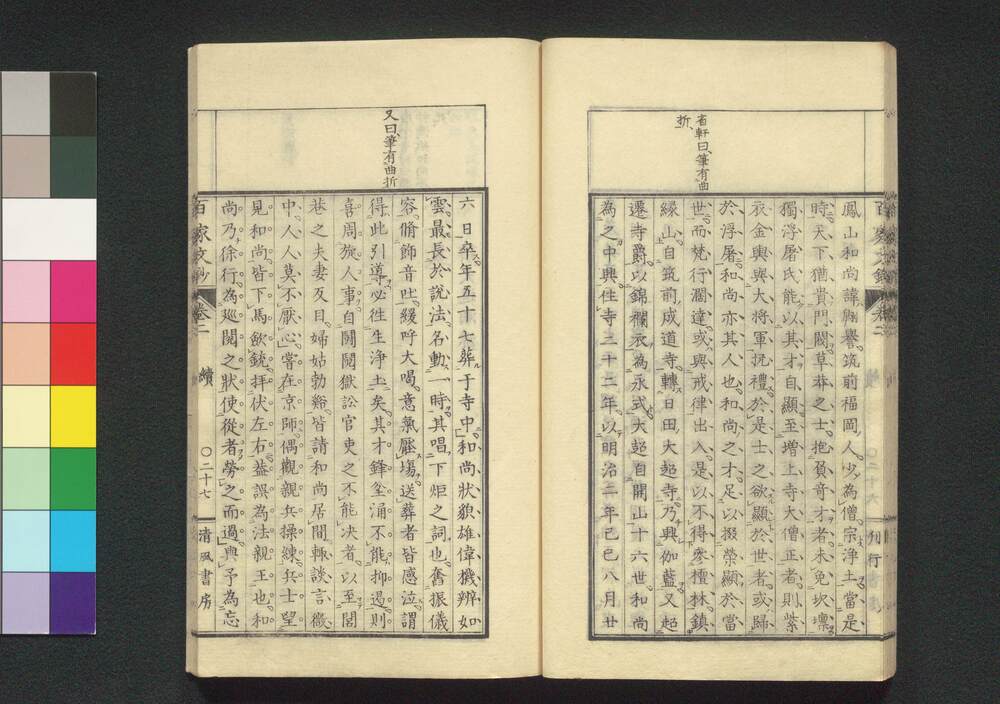 省軒曰、筆有曲
折、
鳳山和尚諱興譽、筑前福岡人、少為僧、宗淨土、當是
時、天下猶貴門閥、草莽之士、抱負奇才者、未免坎壈、
獨浮屠氏能以其才自顯、至增上寺大僧正者、則紫
衣金輿、與大將軍抗禮、於是士之欲顯於世者、或歸
於浮屠、和尚亦其人也、和尚之才、足以掇榮顯於當
世、而梵行濶達、或與戒律出入、是以不得參檀林、鎮
緣山、自筑前成道寺、轉日田大超寺、乃興伽藍、又超
遷寺爵、以錦襴衣為永式、大超自開山十六世、和尚
為之中興、住寺三十二年、以明治二年己巳八月廿
又曰、筆有曲折
六日卒、年五十七、葬于寺中、和尚狀貌雄偉、機辨如
雲、最長於說法、名動一時、其唱下炬之詞也、奮振儀
容、脩飾音吐、緩呼大喝、意氣壓場、送葬者皆感泣、謂
得此引導、必往生淨土矣、其才鋒坌涌、不能抑遏、則
喜周旋人事、自鬪鬩獄訟官吏之不能決者、以至閭
巷之夫妻反目、婦姑勃谿、皆請和尚居間、輒談言微
中、人人莫不厭心、嘗在京師、偶觀親兵操練、兵士望
見和尚、皆下馬歛銃、拜伏左右、葢誤為法親王也、和
尚乃徐行、為廵閱之狀、使從者勞之而過、與予為忘
百家文鈔 卷二 續 〇二十七 清風書房